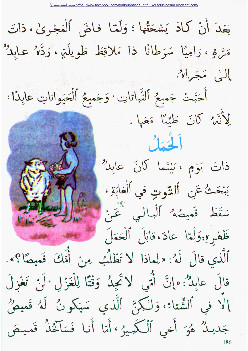 بَعْدَ أَنْ كَادَ يَسْحَقُهَا؛ وَلَمَّا فَاضَ الْمَجْرَى، ذَاتَ
مَرَّةٍ، رَامِيًا سَرَطَانًا ذَا مَلَاقِطَ طَوِيلَةٍ، رَدَّهُ عَابِدٌ
إِلَى مَجْرَاهُ.
أَحَبَّتْ جَمِيعُ النَّبَاتَاتِ، وَجَمِيعُ الْحَيَوَانَاتِ عَابِدًا،
لِأَنَّهُ كَانَ طَيِّبًا مَعَهَا.
الْحَمَلُ
ذَاتَ يَوْمٍ، بَيْنَمَا كَانَ عَابِدٌ
يَبْحَثُ عَنِ التُّوتِ فِي الْغَابَةِ،
سَقَطَ قَمِيصُهُ الْبَالِي عَنْ
ظَهْرِهِ؛ وَلَمَّا عَادَ، قَابَلَ الْحَمَلَ
الَّذِي قَالَ لَهُ: «لِمَاذَا لَا تَطْلُبُ مِنْ أُمِّكَ قَمِيصًا؟».
قَالَ عَابِدٌ: «إِنَّ أُمِّي لَا تَجِدُ وَقْتًا لِلْغَزْلِ، لَنْ تَغْزِلَ
إِلَّا فِي الشِّتَاءِ؛ وَلٰكِنَّ الَّذِي سَيَكُونُ لَهُ قَمِيصٌ
جَدِيدٌ هُوَ أَخِي الْكَبِيرُ، أَمَّا أَنَا فَسَآخُذُ قَمِيصَ